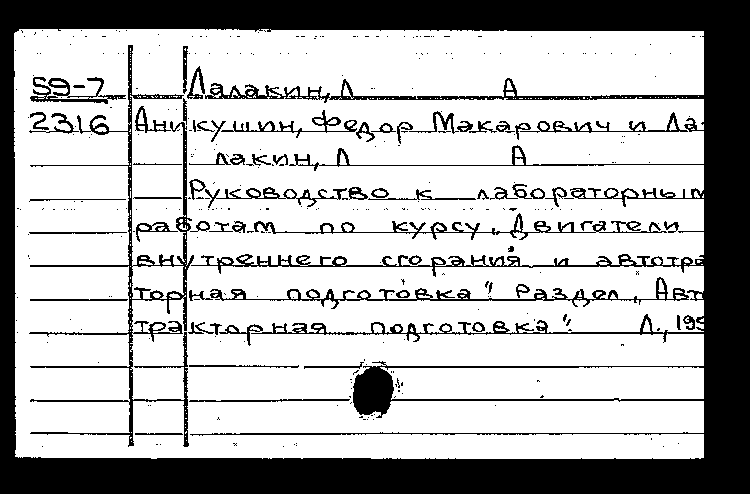 59-7 Лалакин, Л А
2316 Аникушин, Федор Макарович и Ла-
лакин, Л А
Руководство к лабораторным
работам по курсу „Двигатели
внутреннего сгорания и автотра
торная подготовка". Раздел „Авт
тракторная подготовка". Л., 195